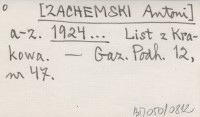 [ZACHEMSKI Antoni]
a-z. 1924... List z Kra-
kowa. — Gaz. Podh. 12,
nr 47.